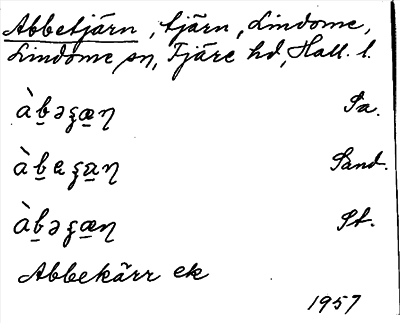 Abbetjärn, tjärn, Lindome,
Lindome sn, Fjäre hd, Hall. l.
àb̲əʂæ̲ŋ Sa.
àb̲eʂa̲ŋ Sand.
àb̲əʂæ̲ŋ St.
Abbekärr ek
1957